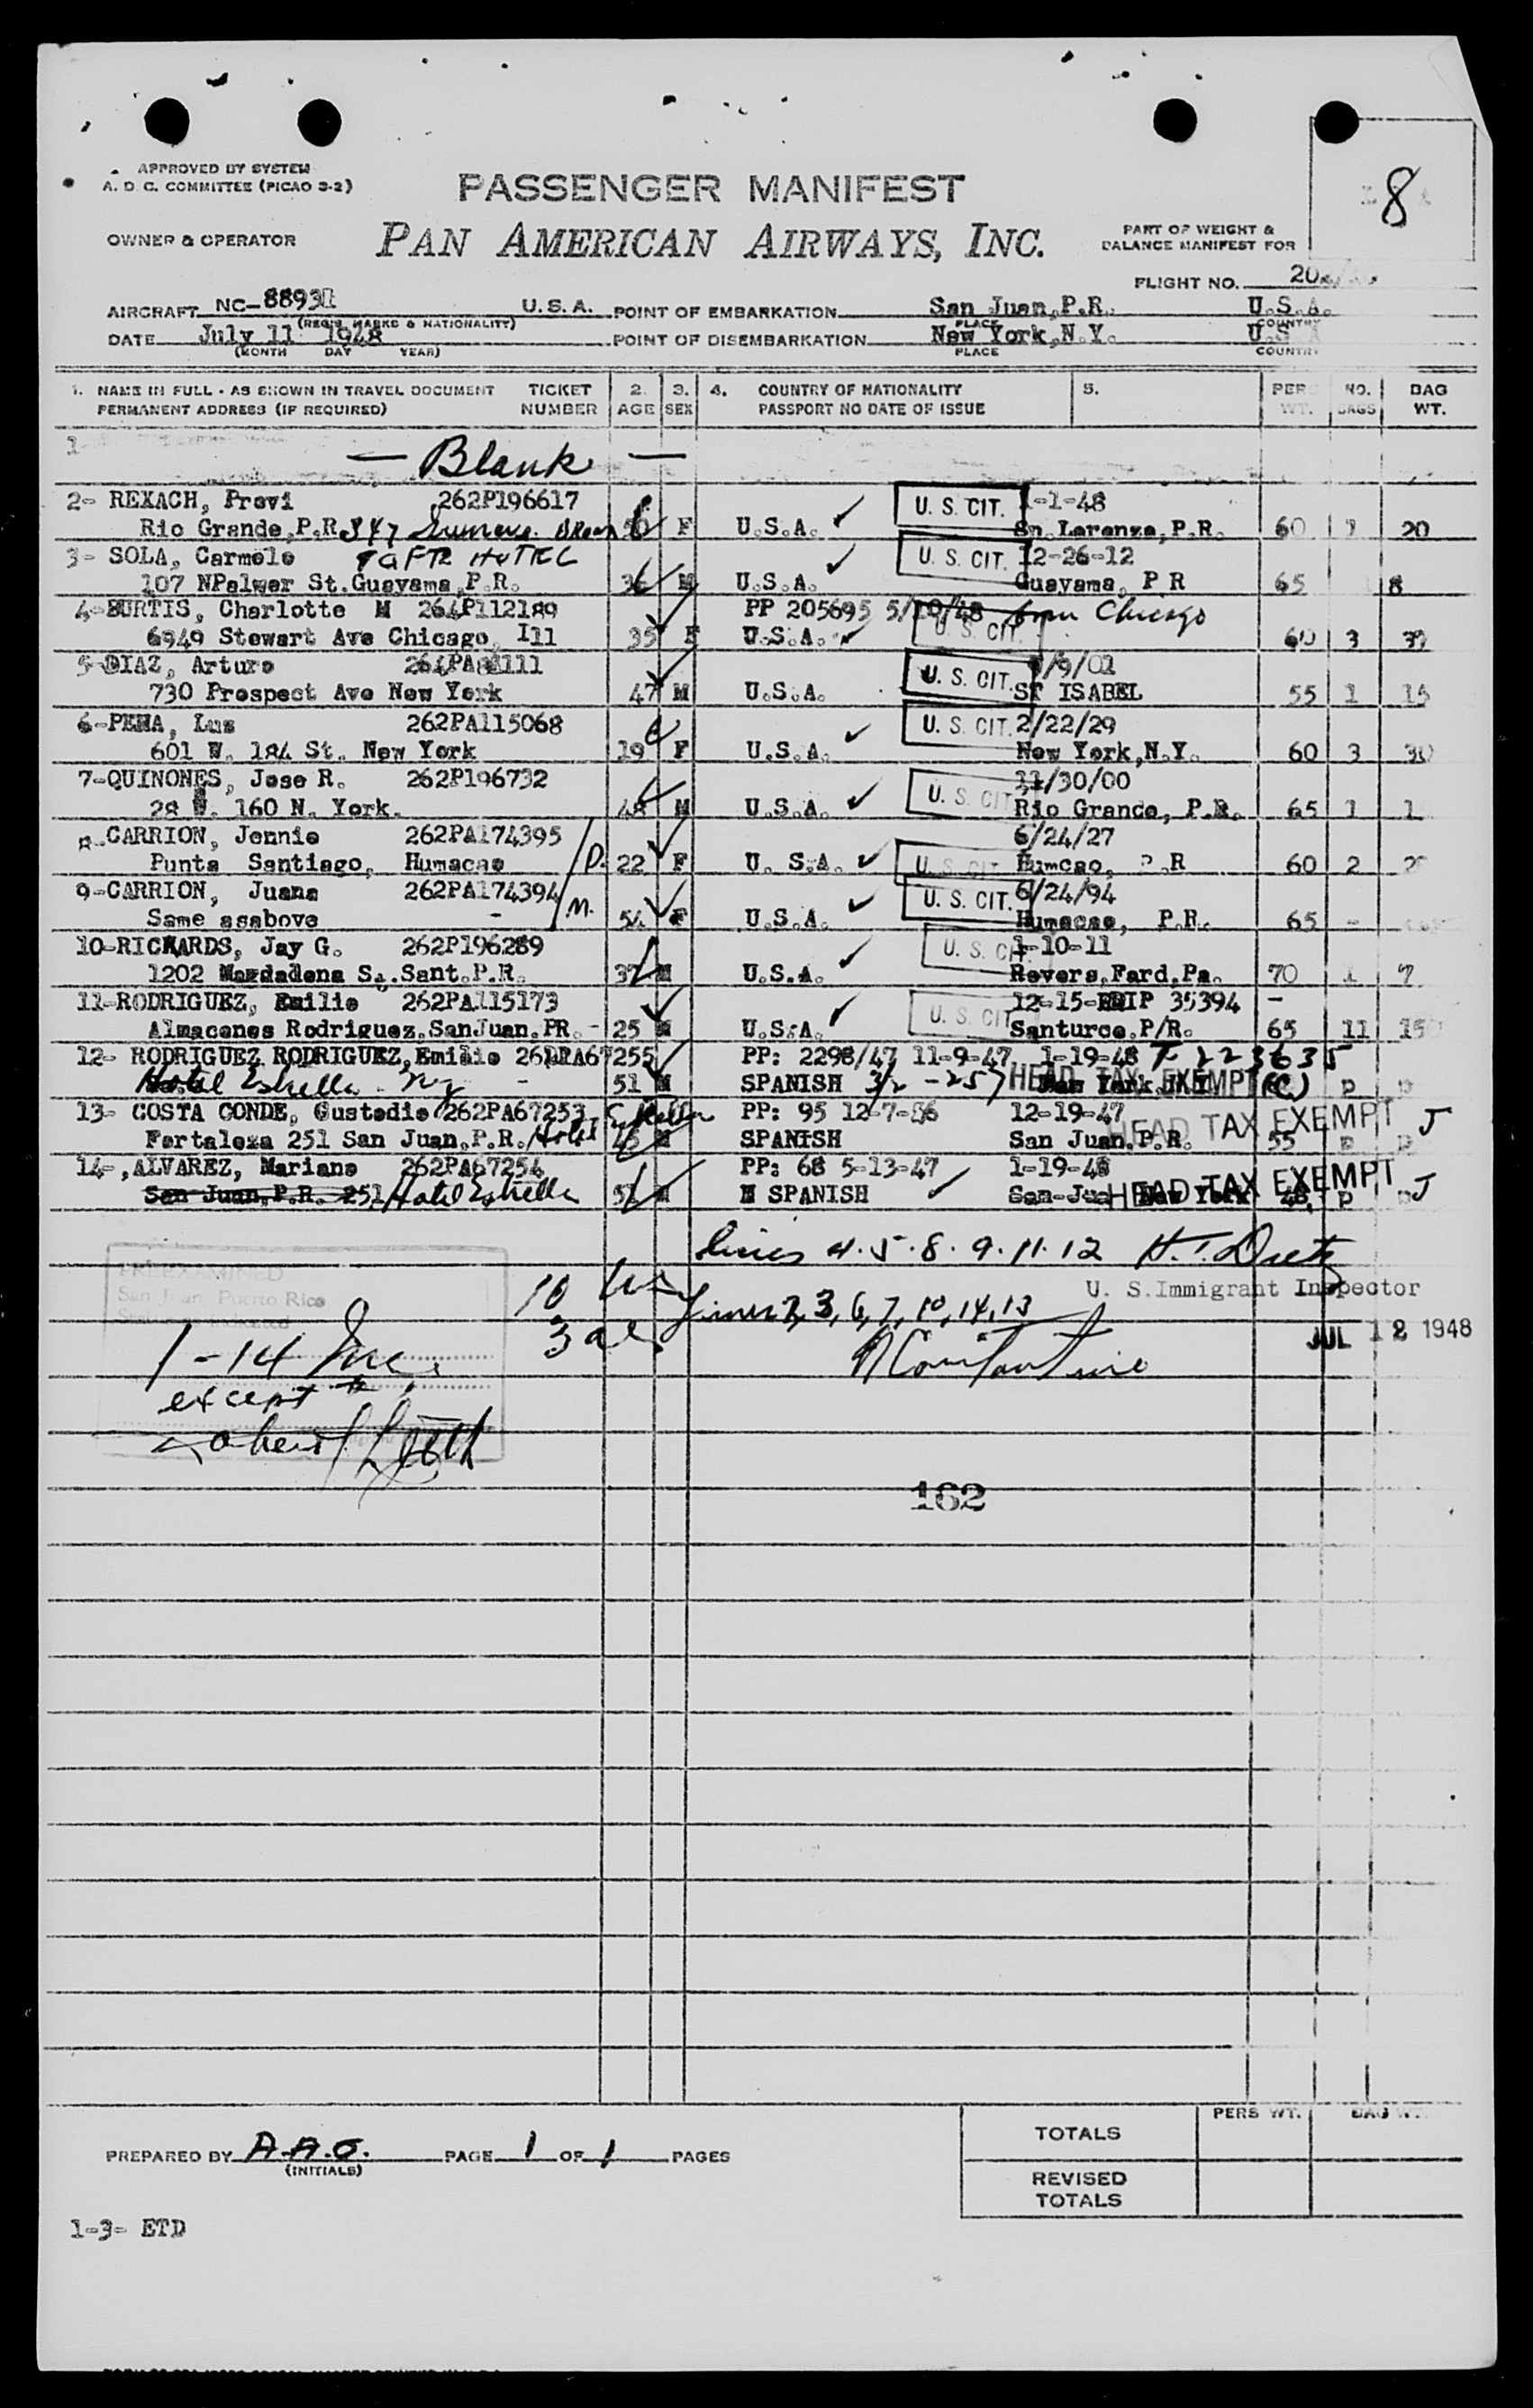 APPROVED BY SYSTEM
A. D. C. COMMITTEE (PICAO 3-2)
PASSENGER MANIFEST
8
OWNER & OPERATOR
PAN AMERICAN AIRWAYS, INC.
PART OF WEIGHT &
BALANCE MANIFEST FOR
FLIGHT NO.
AIRCRAFT NC-88931 U.S.A. POINT OF EMBARKATION San Juan,P.R. U.S.A.
(REGIS. MARKS & NATIONALITY) PLACE COUNTRY
DATE July 11 1948 POINT OF DISEMBARKATION New York,N.Y.
(MONTH DAY YEAR) PLACE COUNTRY
1. NAME IN FULL - AS SHOWN IN TRAVEL DOCUMENT TICKET 2. 3. 4. COUNTRY OF NATIONALITY 5. PERS NO. BAG
PERMANENT ADDRESS (IF REQUIRED) NUMBER AGE SEX PASSPORT NO DATE OF ISSUE WT. BAGS WT.
1
— Blank —
2- REXACH, Provi 262P196617 U. S. CIT. 1-1-48
Rio Grande,P.R. 347 F U.S.A. Sn.Lorenzo,P.R. 60 1 20
3- SOLA, Carmelo TAFT HOTEL U. S. CIT. 12-26-12
107 NPalmer St.Guayama,P.R. M U.S.A. Guayama, P R 65 8
4-BURTIS, Charlotte M 264P112189 PP 205695 5/10/48 from Chicago
6949 Stewart Ave Chicago, Ill 35 F U.S.A. U. S. CIT. 60 3
5-DIAZ, Arturo /9/01
730 Prospect Ave New York 47 M U.S.A. U. S. CIT. ST ISABEL 55 1 15
6-PENA, Luz 262PA115068 U. S. CIT. 2/22/29
601 W. 184 St. New York 19 F U.S.A. New York,N.Y. 60 3 30
7-QUINONES, Jose R. 262P196732 11/30/00
28 W. 160 N. York. 48 M U.S.A. U. S. CIT. Rio Grande, P.R. 65 1
8-CARRION, Jennie 262PA174395 6/24/27
Punta Santiago, Humacao D. 22 F U. S.A. U. S. CIT. Humcao, P.R 60 2
9-CARRION, Juana 262PA174394 U. S. CIT. 6/24/94
Same asabove - M. 54 F U.S.A. Humacao, P.R. 65 -
10-RICKARDS, Jay G. 262P196289 U. S. CIT. 1-10-11
1202 Magdadena S. .Sant.P.R. 37 M U.S.A. Revers,Fard,Pa. 70 1 7
11-RODRIGUEZ, Emilio 262PA115173 12-15- IP 35394 -
Almacenes Rodriguez.SanJuan.PR. - 25 M U.S.A. U. S. CIT. Santurce.P/R. 65 11 15
12- RODRIGUEZ RODRIGUEZ,Emilio PP: 2298/47 11-9-47 1-19-48 T 223635
Hotel Estrella - NY - 51 M SPANISH 3/2 - 257 HEAD TAX EXEMPT (C) P
13- COSTA CONDE, Gustodio 262PA67253 Estrella PP: 95 12-7- 12-19-47
Fortaleza 251 San Juan.P.R. Hotel 45 M SPANISH San Juan.P.R. HEAD TAX EXEMPT 55 P J
14-,ALVAREZ, Mariano 262PA67254 PP: 68 5-13-47 1-19-48
San Juan.P.R. 251 Hotel Estrella M SPANISH San-Jua New York HEAD TAX EXEMPT 48 P J
lines 4. 5. 8. 9. 11. 12
U. S.Immigrant Inspector
PREEXAMINED
San Juan, Puerto Rico
10 US
3 al
Lines 2, 3, 6, 7, 10, 14, 13
JUL 12 1948
1 - 14 Inc.
except
162
PREPARED BY A.A.O. PAGE 1 OF 1 PAGES
(INITIALS)
PERS WT. BAG WT.
TOTALS
REVISED
TOTALS
1-3- ETD